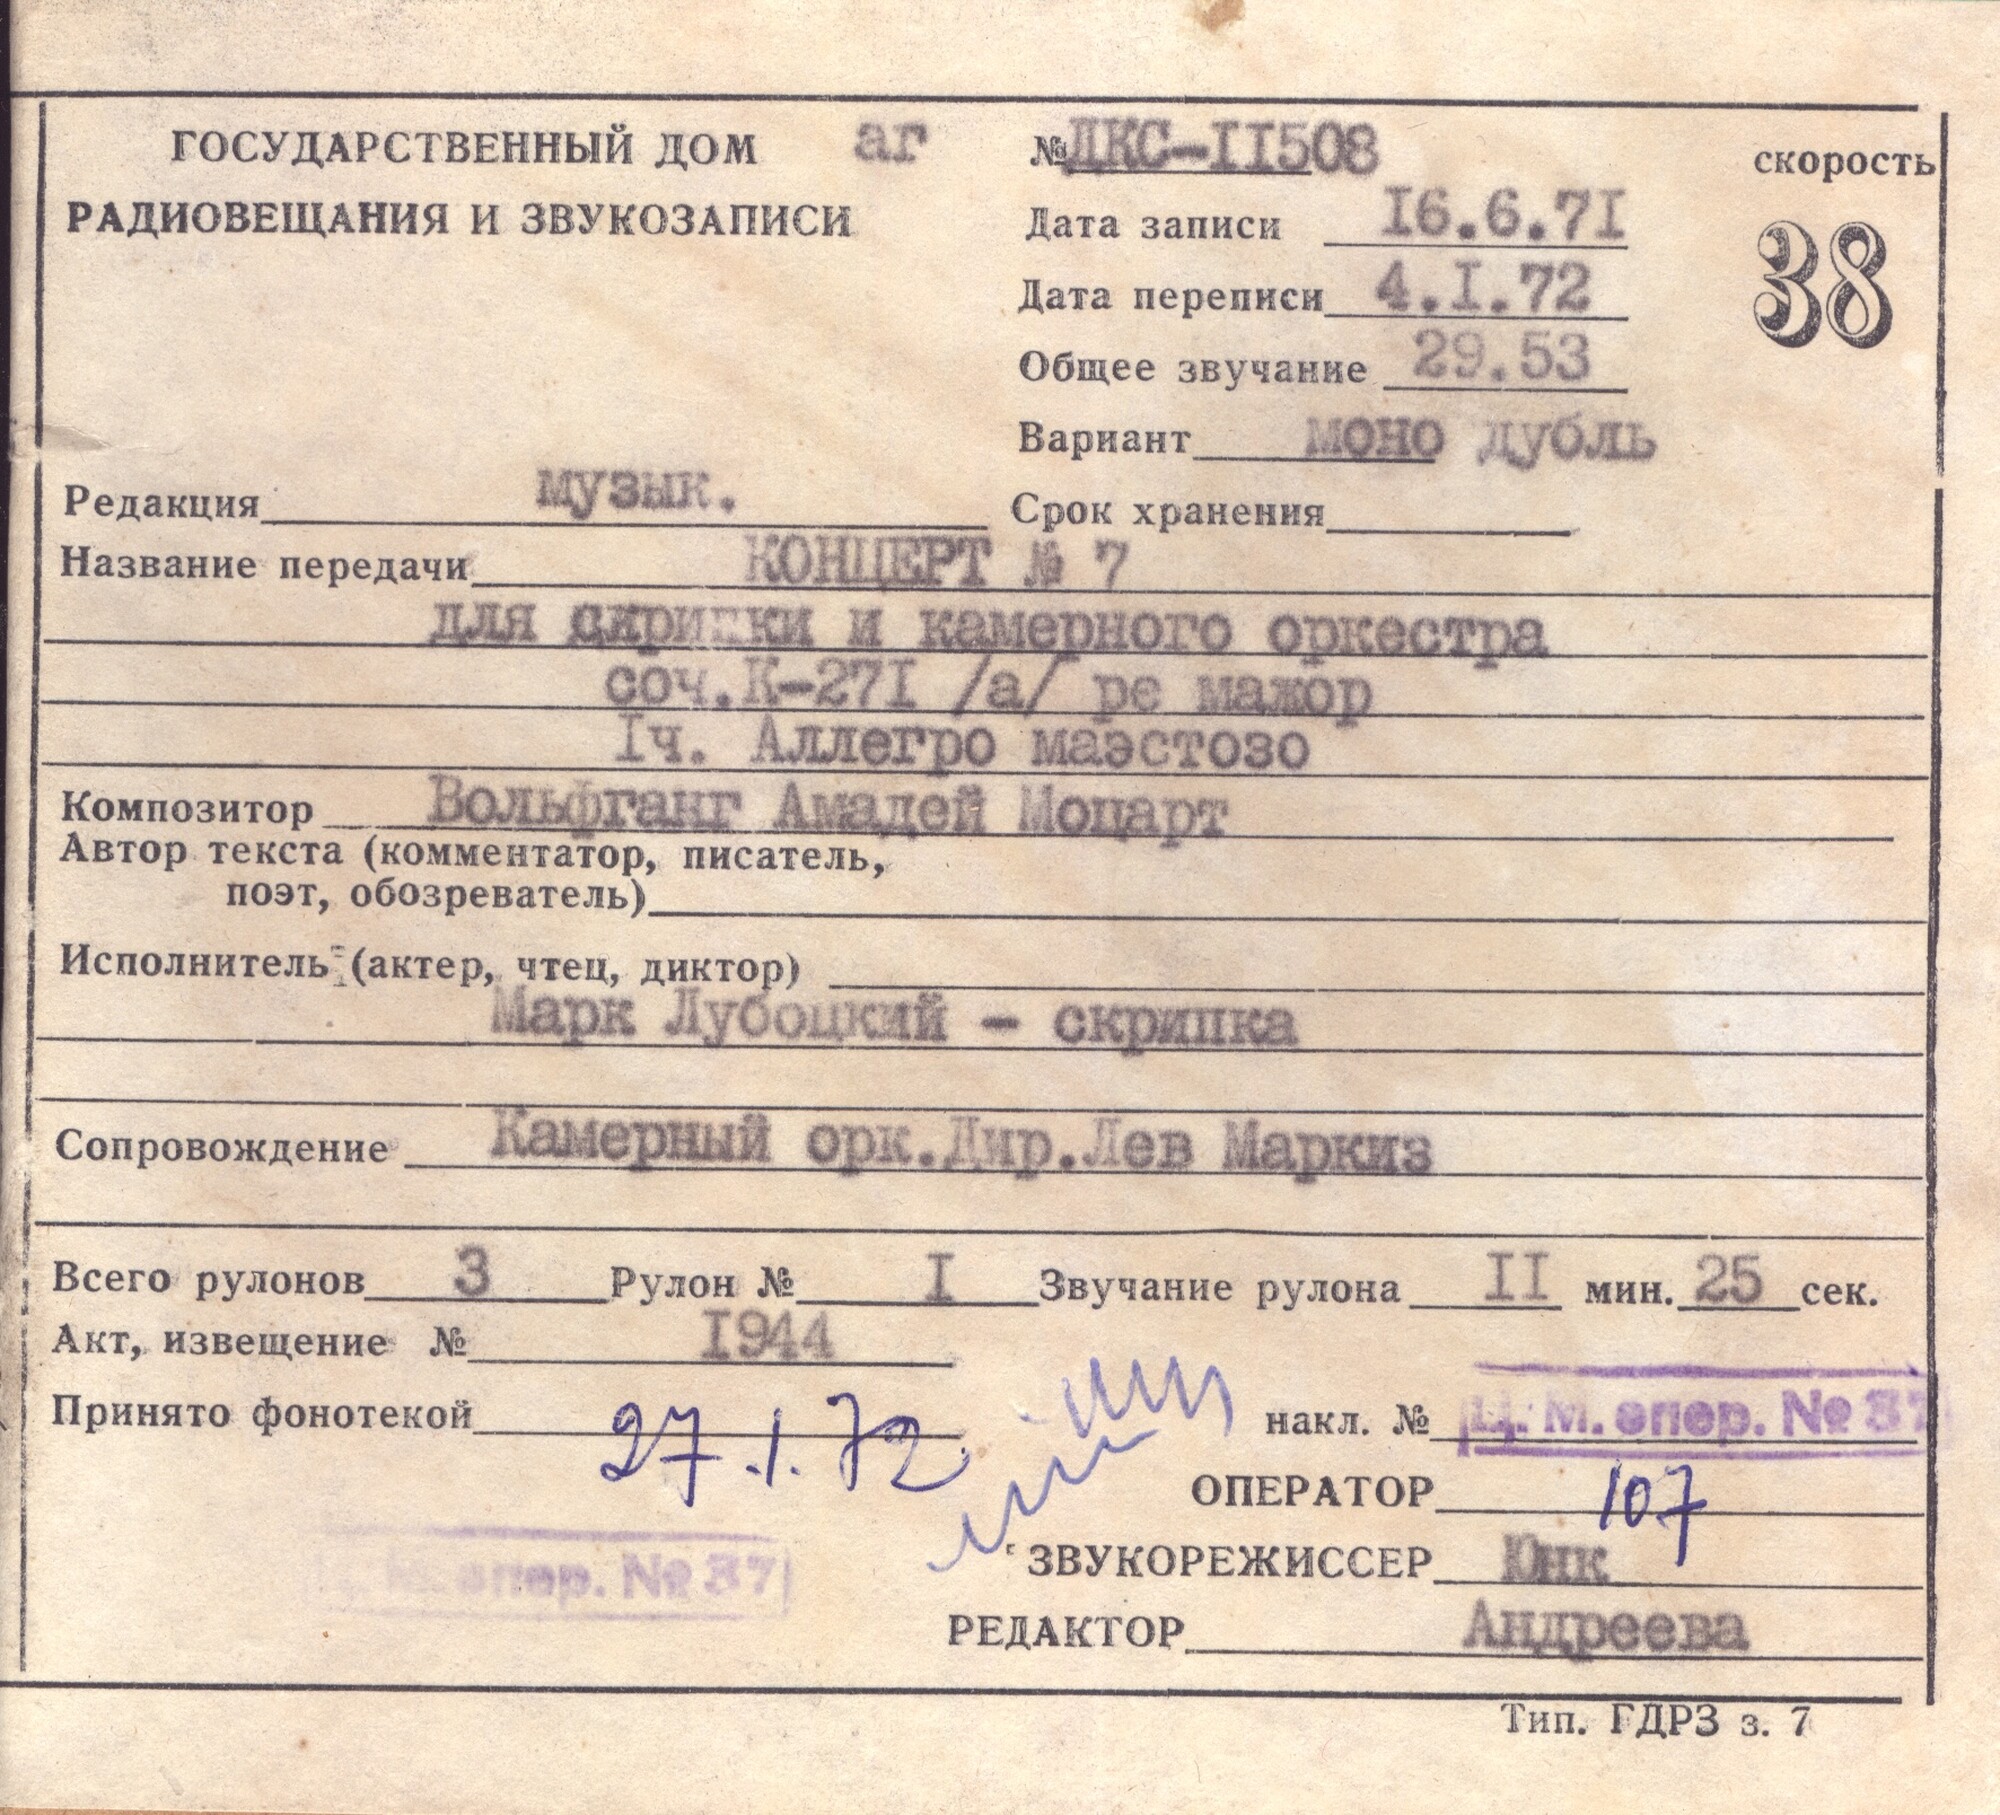 ГОСУДАРСТВЕННЫЙ ДОМ аг
РАДИОВЕЩАНИЯ И ЗВУКОЗАПИСИ
№ ДКС-II508
скорость
38
Дата записи I6.6.7I
Дата переписи 4.I.72
Общее звучание 29.53
Вариант моно дубль
Редакция музык. Срок хранения
Название передачи КОНЦЕРТ № 7
для скрипки и камерного оркестра
соч.К-27I /а/ ре мажор
Iч. Аллегро маэстозо
Композитор Вольфганг Амадей Моцарт
Автор текста (комментатор, писатель,
поэт, обозреватель)
Исполнитель (актер, чтец, диктор)
Марк Лубоцкий - скрипка
Сопровождение Камерный орк.Дир.Лев Маркиз
Всего рулонов 3 Рулон № I Звучание рулона II мин. 25 сек.
Акт, извещение № I944
Принято фонотекой 27.1.72 накл. № Ц. М. опер. № 37
ОПЕРАТОР 107
опер. № 37
ЗВУКОРЕЖИССЕР Юнк
РЕДАКТОР Андреева
Тип. ГДРЗ з. 7